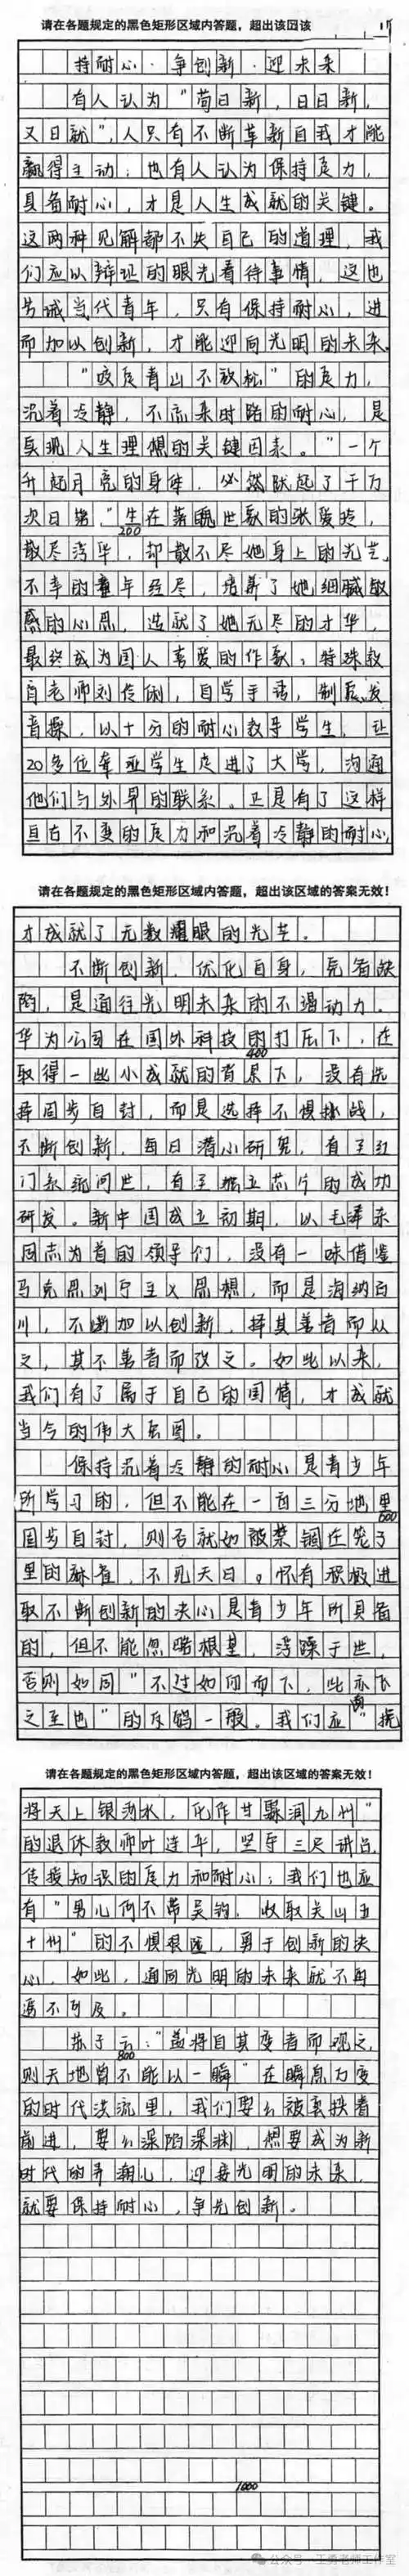 请在各题规定的黑色矩形区域内答题，超出该区该
持耐心·争创新·迎未来
有人认为“苟日新，日日新，
又日新”，人只有不断革新自我才能
赢得主动；也有人认为保持定力，
具备耐心，才是人生成就的关键。
这两种见解都不失自己的道理，我
们应以辩证的眼光看待事情，这也
告诫当代青年，只有保持耐心，进
而加以创新，才能迎向光明的未来。
“咬定青山不放松”的定力，
沉着冷静，不流来时路的耐心，是
实现人生理想的关键因素。“一个
升起月亮的身体，必然驮起了千万
次日落。”生在落魄世家的张爱玲，
200
散尽浮华，却散不尽她身上的光芒，
不幸的童年经历，培养了她细腻敏
感的心思，造就了她无尽的才华，
最终成为国人喜爱的作家；特殊教
育老师刘传俐，自学手语，制定发
音操，以十分的耐心教导学生，让
20多位聋哑学生走进了大学，沟通
他们与外界的联系。正是有了这样
亘古不变的定力和沉着冷静的耐心，
请在各题规定的黑色矩形区域内答题，超出该区域的答案无效！
才成就了无数耀眼的光芒。
不断创新，优化自身，完备缺
陷，是通往光明未来的不竭动力。
华为公司在国外科技的打压下，在
400
取得一些小成就的背景下，没有选
择固步自封，而是选择不惧挑战，
不断创新，每日潜心研究，有了红
门系统问世，有了独立芯片的成功
研发。新中国成立初期，以毛泽东
同志为首的领导们，没有一味借鉴
马克思列宁主义思想，而是海纳百
川，不断加以创新，择其善者而从
之，其不善者而改之。如此以来，
我们有了属于自己的国情，才成就
当今的伟大宏图。
保持沉着冷静的耐心是青少年
所学习的，但不能在一亩三分地里
600
固步自封，则否就如被禁锢在笼子
里的麻雀，不见天日。怀有积极进
取不断创新的决心是青少年所具备
的，但不能忽略根基，浮躁于世，
否则如同“不过如仞而下，此亦飞
之至也”的斥鴳一般。我们应向“挽
请在各题规定的黑色矩形区域内答题，超出该区域的答案无效！
将天上银河水，化作甘霖润九州”
的退休教师叶连平，坚守三尺讲台，
传授知识的定力和耐心；我们也应
有“男儿何不带吴钩，收取关山五
十州”的不惧艰险，勇于创新的决
心，如此，通向光明的未来就不再
遥不可及。
苏子云：“盖将自其变者而观之，
800
则天地曾不能以一瞬”在瞬息万变
的时代洪流里，我们要么被裹挟着
前进，要么深陷深渊，想要成为新
时代的弄潮儿，迎接光明的未来，
就要保持耐心，争先创新。
1000
公众号·王勇老师工作室